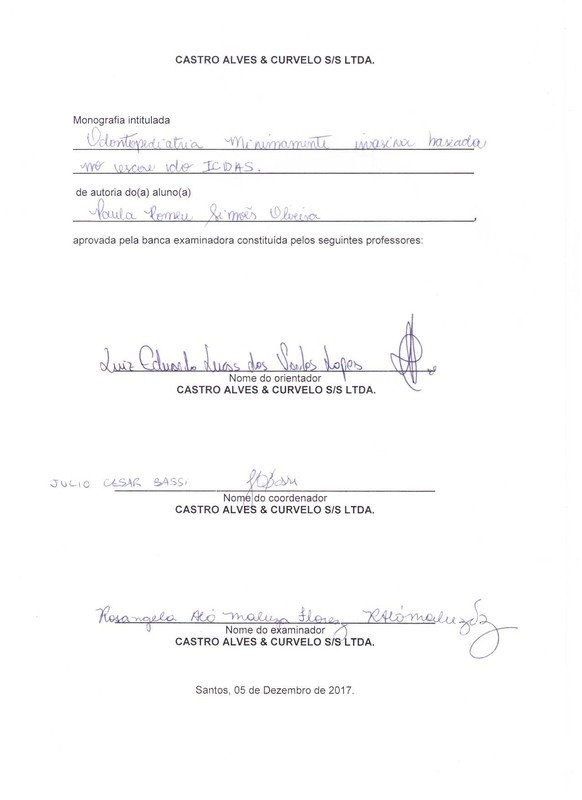 CASTRO ALVES & CURVELO S/S LTDA.
Monografia intitulada
Odontopediatria Minimamente invasiva baseada
no escore do ICDAS.
de autoria do(a) aluno(a)
Paula Romeu Simões Oliveira
aprovada pela banca examinadora constituída pelos seguintes professores:
Luiz Eduardo dos Santos Lopes
Nome do orientador
CASTRO ALVES & CURVELO S/S LTDA.
JULIO CESAR BASSI
Nome do coordenador
CASTRO ALVES & CURVELO S/S LTDA.
Rosangela Aló Maluza Florez
Nome do examinador
CASTRO ALVES & CURVELO S/S LTDA.
Santos, 05 de Dezembro de 2017.